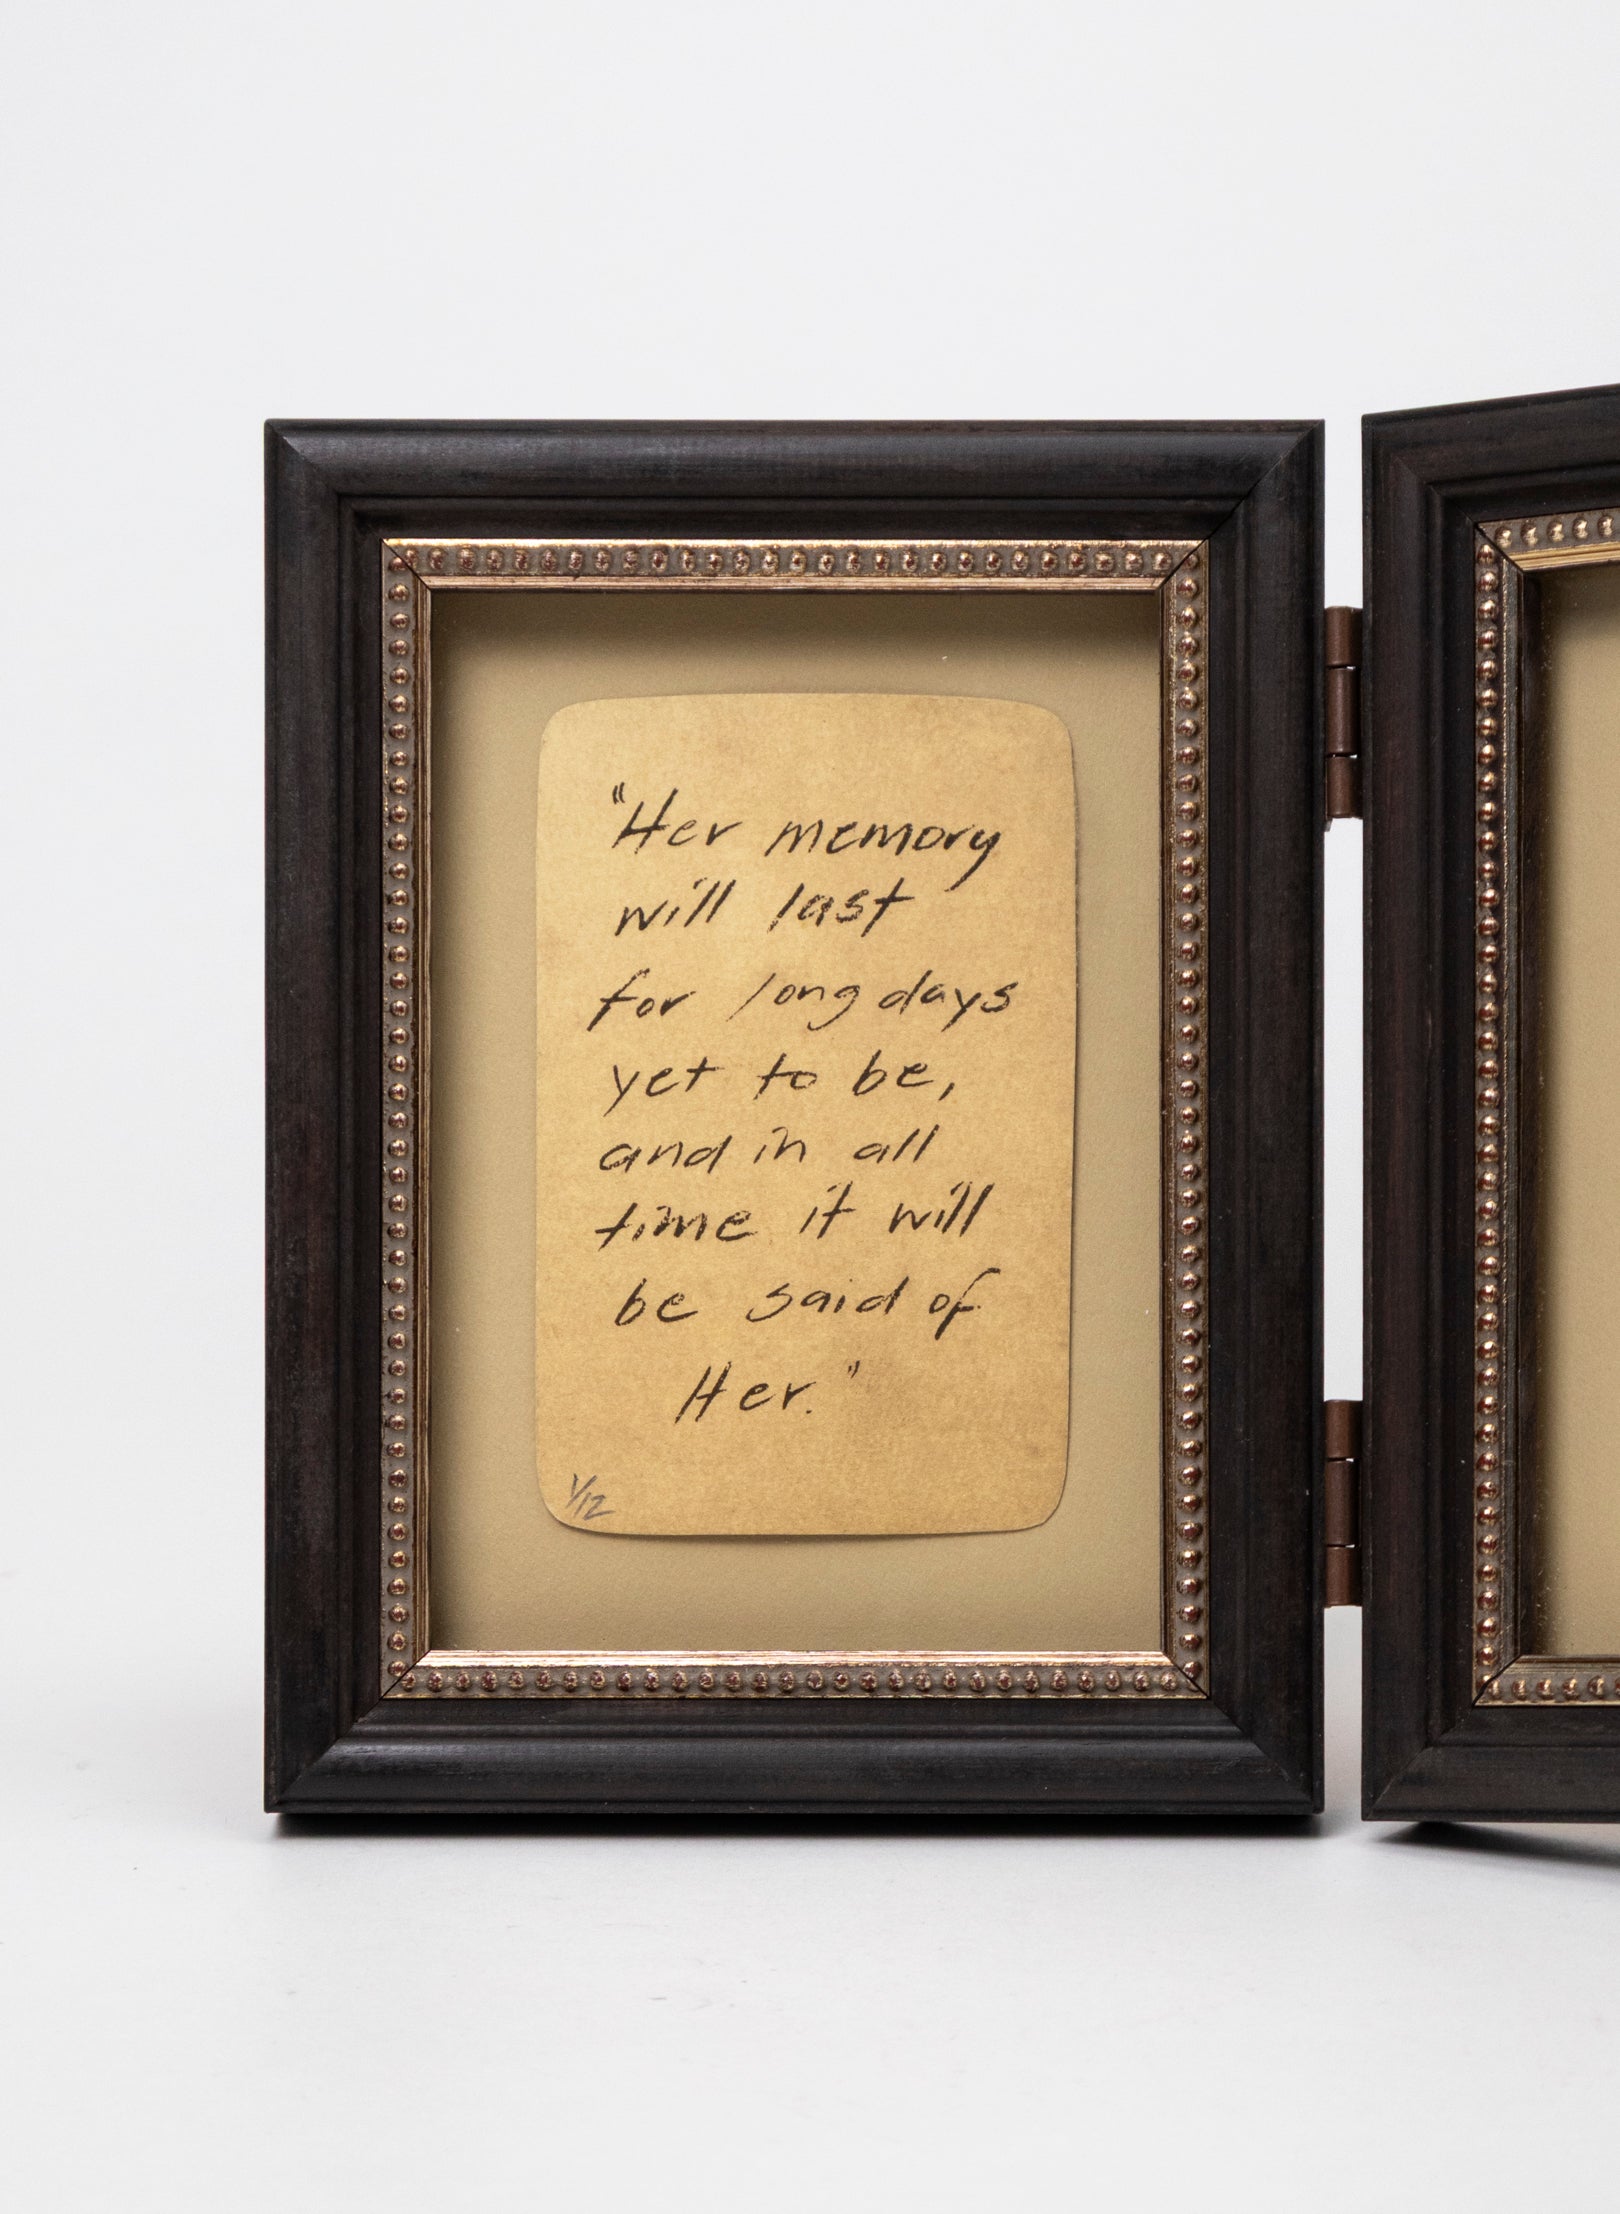 "Her memory
will last
for long days
yet to be,
and in all
time it will
be said of
Her."
1/12